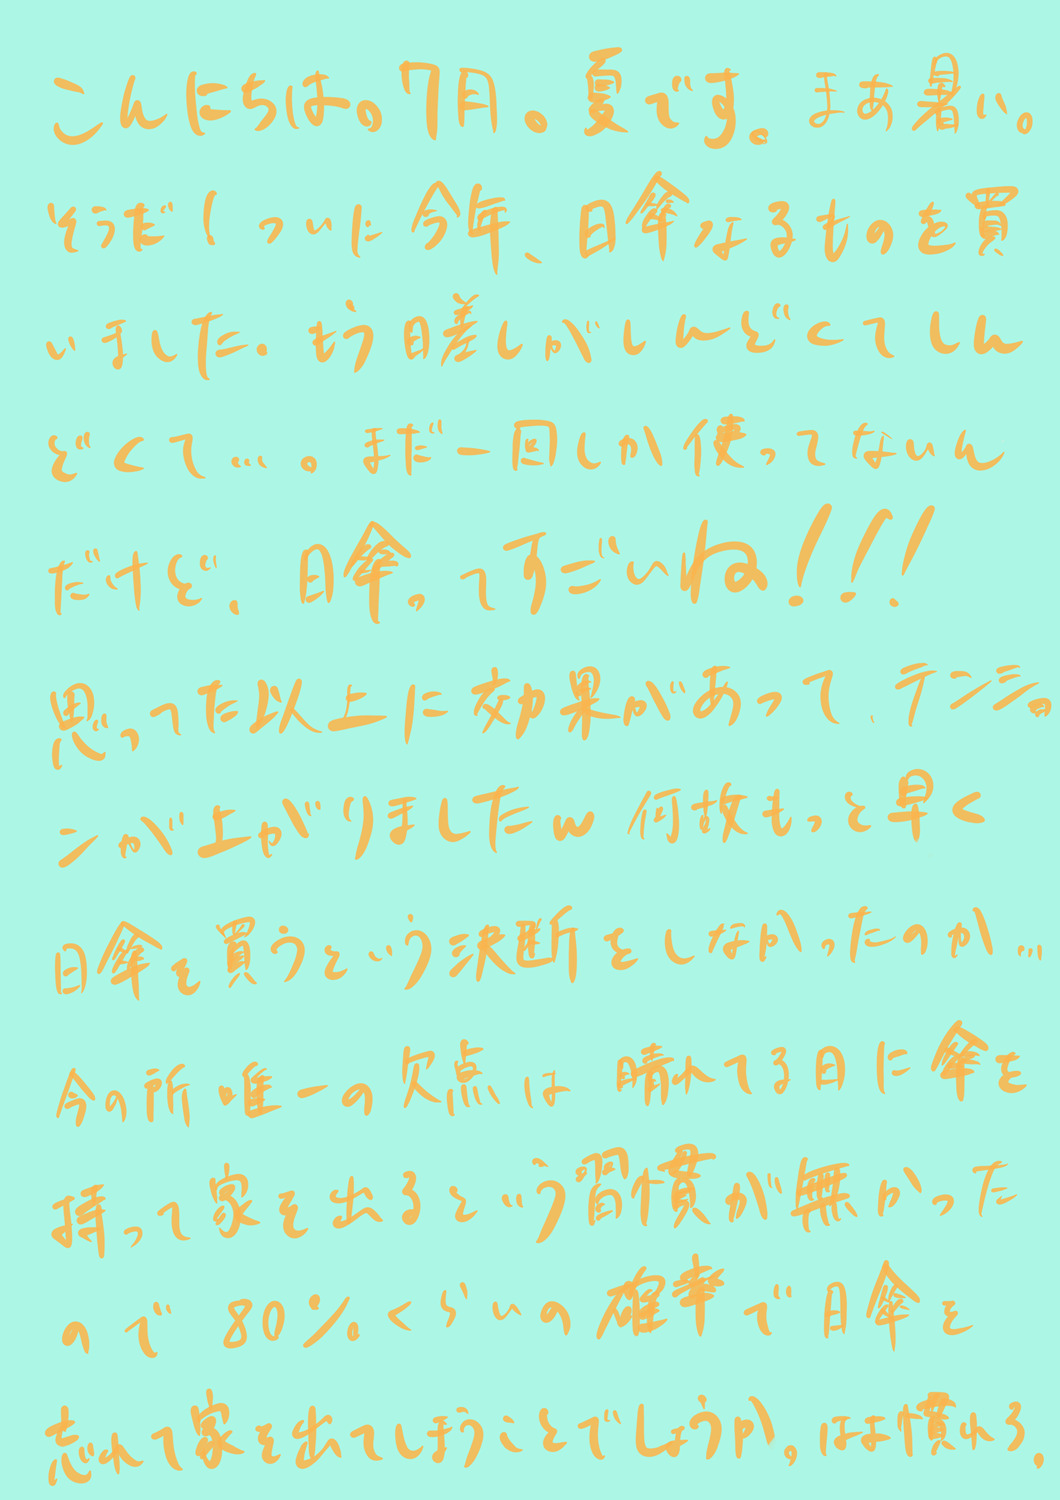 こんにちは。7月。夏です。まあ暑い。
そうだ！ついに今年、日傘なるものを買
いました。もう日差しがしんどくてしん
どくて…。まだ一回しか使ってないん
だけど、日傘ってすごいね!!!
思ってた以上に効果があって、テンショ
ンが上がりましたw 何故もっと早く
日傘を買うという決断をしなかったのか…
今の所唯一の欠点は 晴れてる日に傘を
持って家を出るという習慣が無かった
ので80%くらいの確率で日傘を
忘れて家を出てしまうことでしょうか。はよ慣れろ。